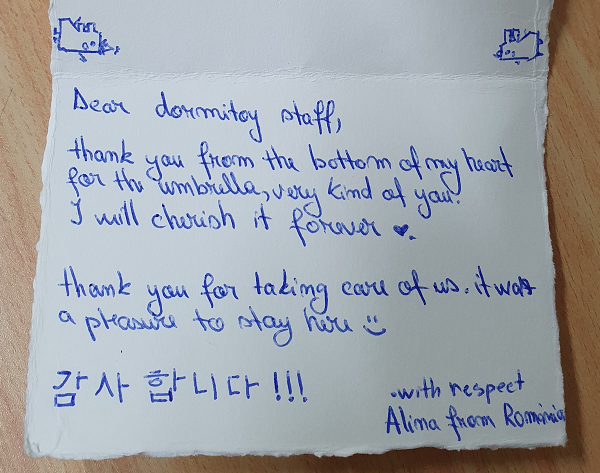 Dear dormitoy staff,
thank you from the bottom of my heart
for the umbrella, very kind of you.
I will cherish it forever ♥.
thank you for taking care of us. it was
a pleasure to stay here ☺
감사 합니다!!!
.with respect
Alina from Romania